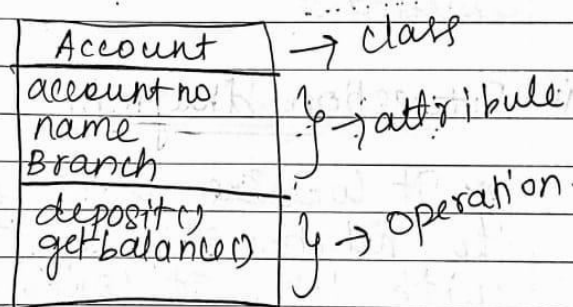 Account → class
account no
name
Branch
} → attribute
deposit()
getbalance()
} → operation